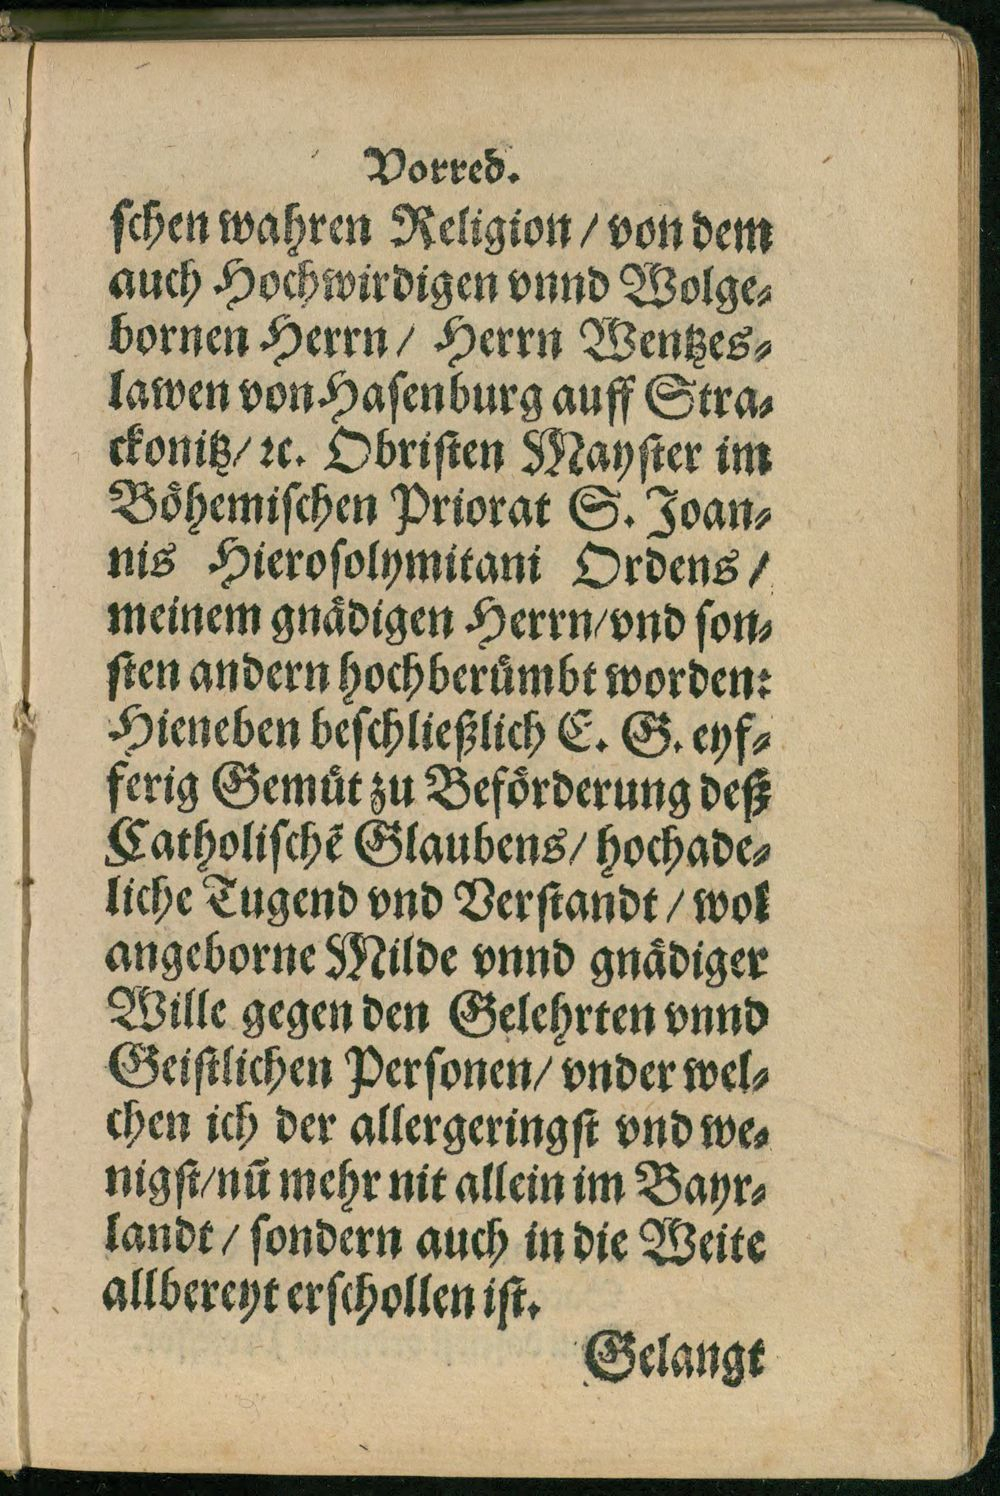 Vorred.
ſchen wahren Religion / von dem
auch Hochwirdigen vnnd Wolge⸗
bornen Herrn / Herrn Wentzes⸗
lawen von Haſenburg auff Stra⸗
ckonitz / ꝛc. Obriſten Mayſter im
Böhemiſchen Priorat S. Joan⸗
nis Hieroſolymitani Ordens /
meinem gnädigen Herrn / vnd ſon⸗
ſten andern hochberümbt worden:
Hieneben beſchließlich E. G. eyf⸗
ferig Gemüt zu Beförderung deß
Catholiſchē Glaubens / hochade⸗
liche Tugend vnd Verſtandt / wol
angeborne Milde vnnd gnädiger
Wille gegen den Gelehrten vnnd
Geiſtlichen Perſonen / vnder wel⸗
chen ich der allergeringſt vnd we⸗
nigſt / nū mehr nit allein im Bayr⸗
landt / ſondern auch in die Weite
allbereyt erſchollen iſt.
Gelangt